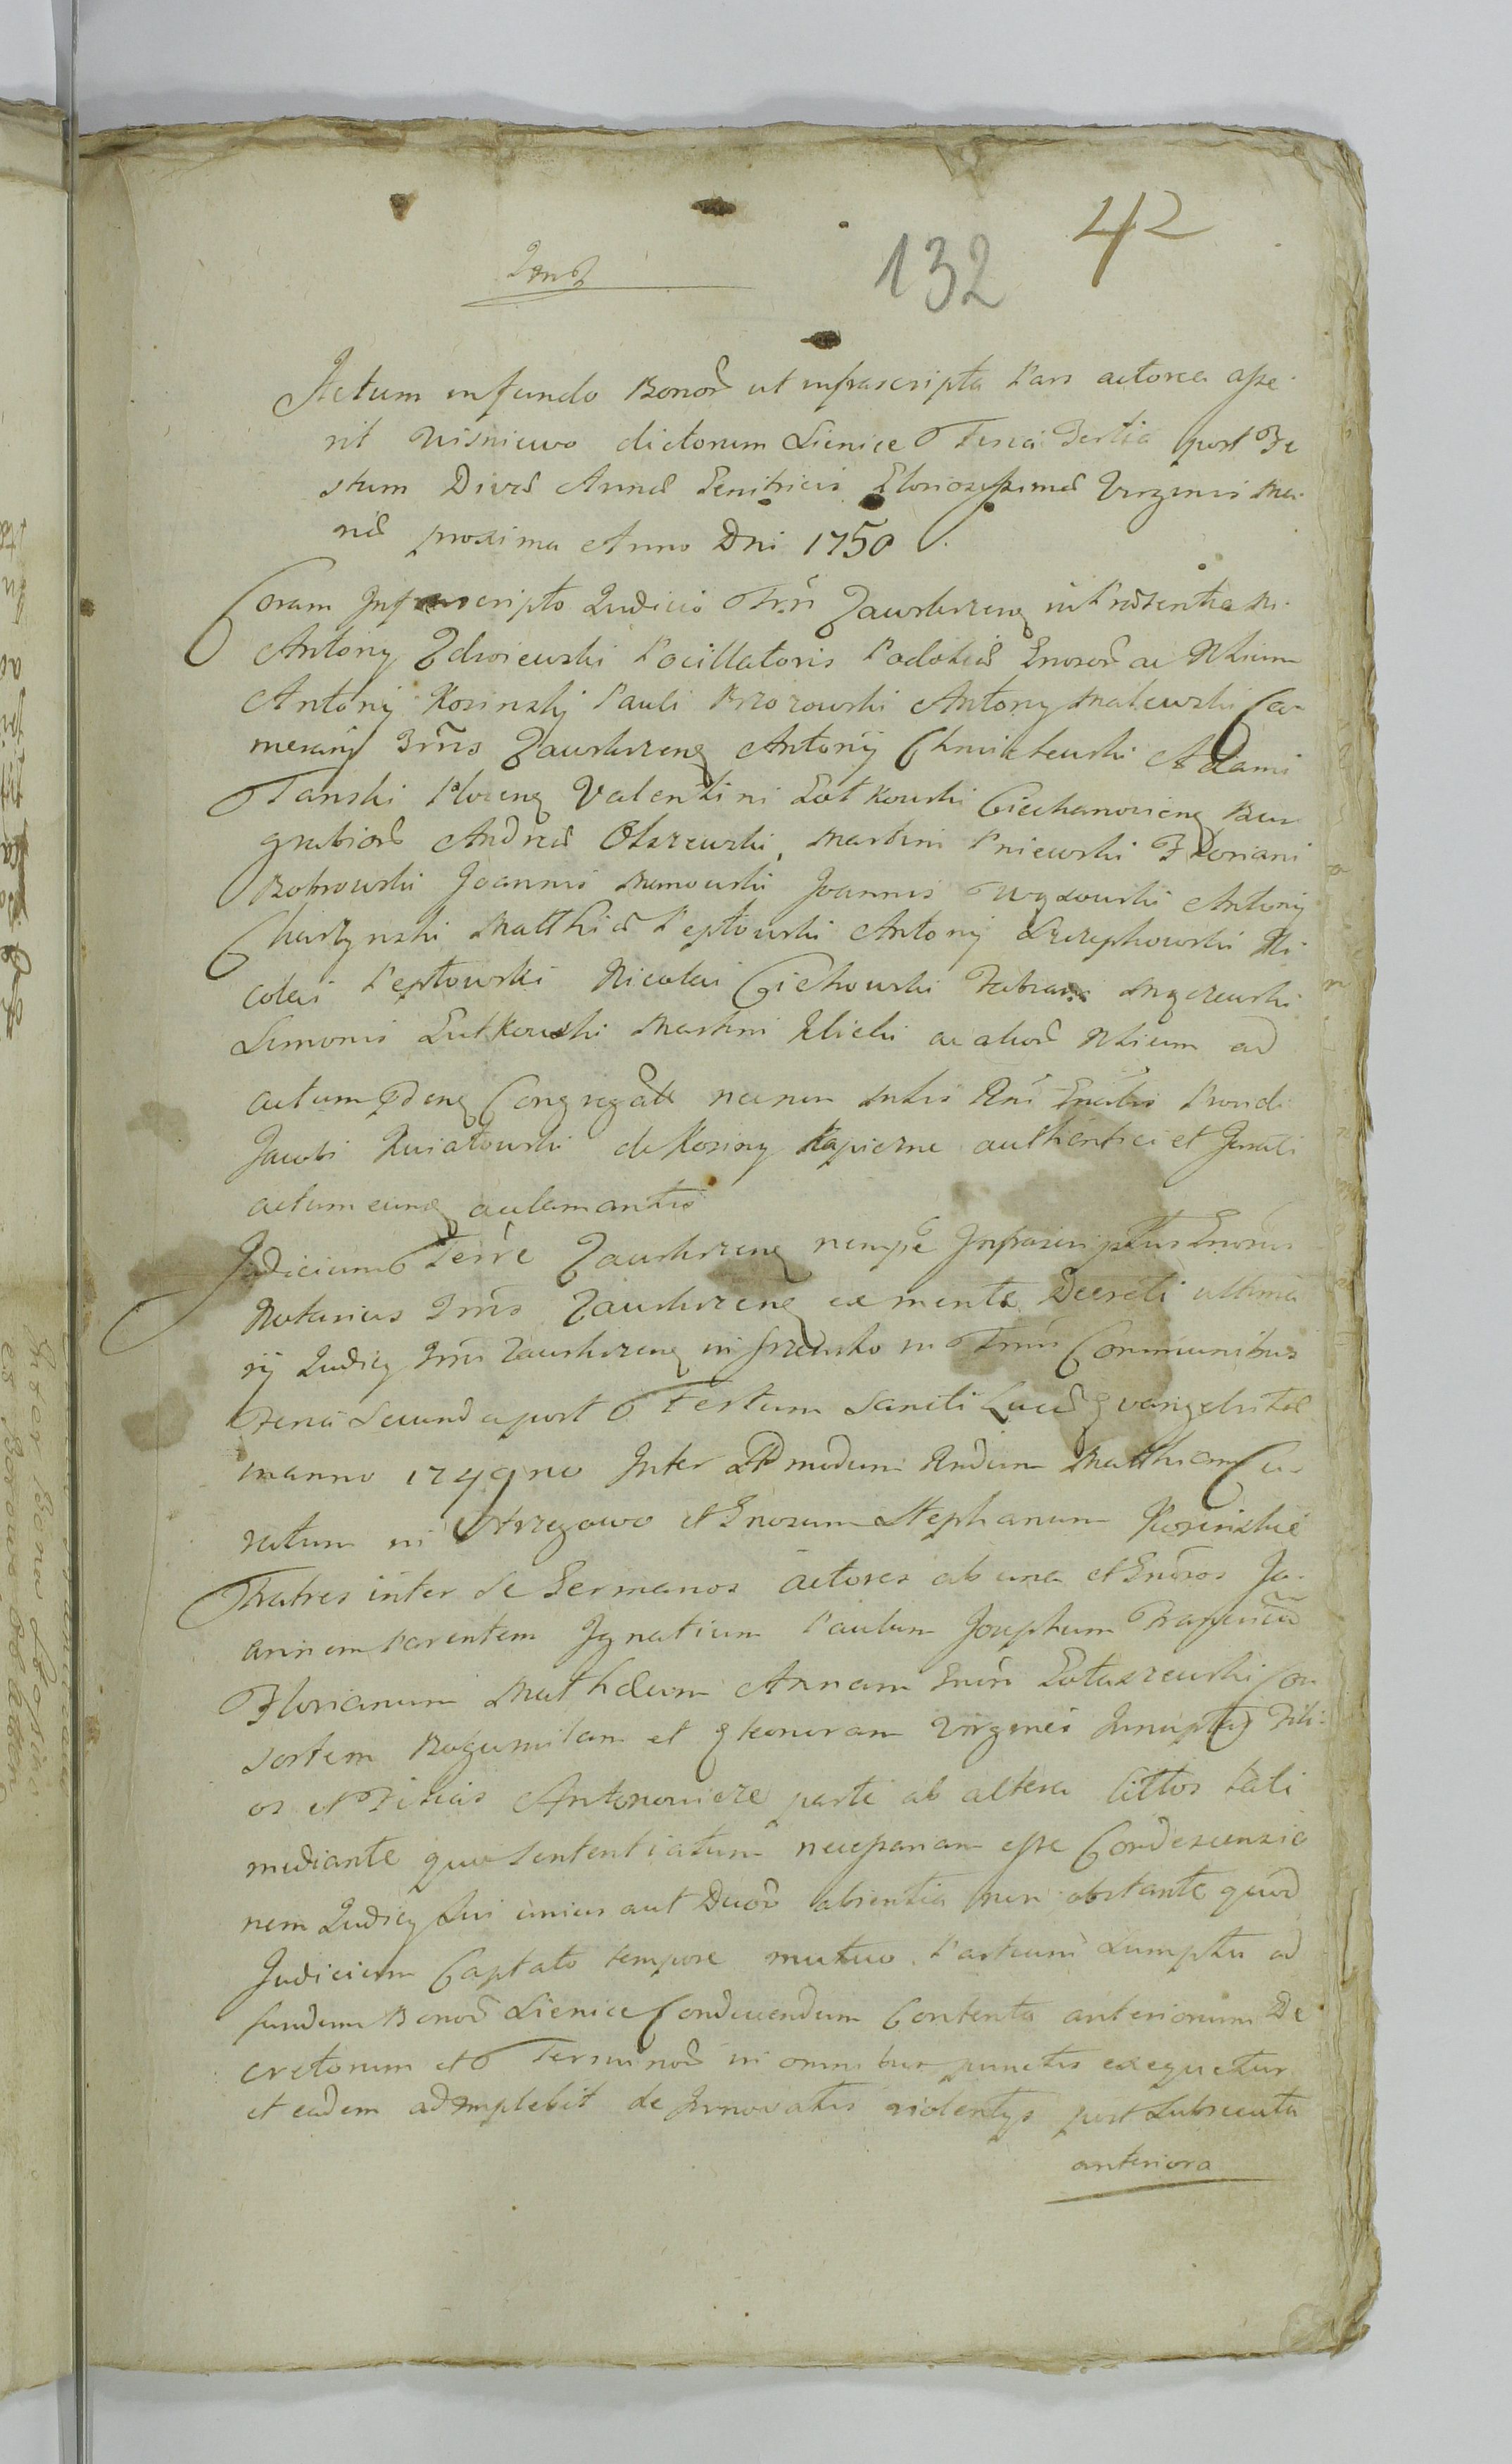 42
132
Actum in fundo Bonor ut infrascripta Pars actorea asse
rit Wisniewo dictorum Sienice Feria Tertia post Fe
stum Divæ Annæ Genitricis Gloriosissimæ Virginis Ma
riæ proxima Anno Dni 1750
Coram Infrascripto Judicio Trri Zawskrzenq in Præsentia M.
Antony Zdroiewski Pocillatoris Podoliæ Gnosor ac Nlium
Antonij Kosinskj Pauli Brzozowski Antony Malewski Ca
merarij Trris Zawskrzenq Antonij Chmielewski Adami
Tanski Plocenq Valentini Lutkowski Ciechanoviens Bur
grabior Andreæ Olszewski, Martini Pniewski Floriani
Bobrowski Joannis Mamowski Joannis Antonij
Charzynski Matthiæ Peplowski Antonij Szczepkowski Ni
colai Peplowski Nicolai Cichowski Fabiani Mączewski
Simonis Lutkowski Martini Klicki ac alior Nlium ad
actum pdenq Congregator necnon Mtlis Rni Gnalis Providi
Jacobi Kwiatowski de Kosiny Kapiczne authentici et Jurati
actum eunq aclamantis
Judicium Terre Zawskrzenq nempe Infrascriptus Gnosus
Notarius Trris Zawskrzenq ex mente Decreti ultima
rij Judicij Trris Zawskrzenq in Szrensko in Trmis Communibus
Feria Secunda post Festum Sancti Lucæ Evangelistæ
in anno 1749no Inter Admodum Rndum Matthiam Cu
ratum in Strzegowo et Gnosum Stephanum Kosinskie
Fratres inter se Germanos actores ab una et Gnosos Jo
annem Parentem Ignatium Paulum Josephum Franciscum
Florianum Mathæum Annam Gnosi Lutaszewski Con
sortem Bogumilam et Eleonoram Virgines Innuptas Fili
os et Filias Antonowicze parte ab altera Cittos lati
mediante quo sententiatum necessariam esse Condescensio
nem Judicij sui unius aut Duor absentia non obstante quod
Judicium Captato tempore mutuo Partium Sumptu ad
fundum Bonor Sienice Conducendum Contenta anteriorum De
cretorum et Terminor in omnibus punctis exequetur
et eadem adimplebit de Innovatis violentijs post Subsecuta
anteriora